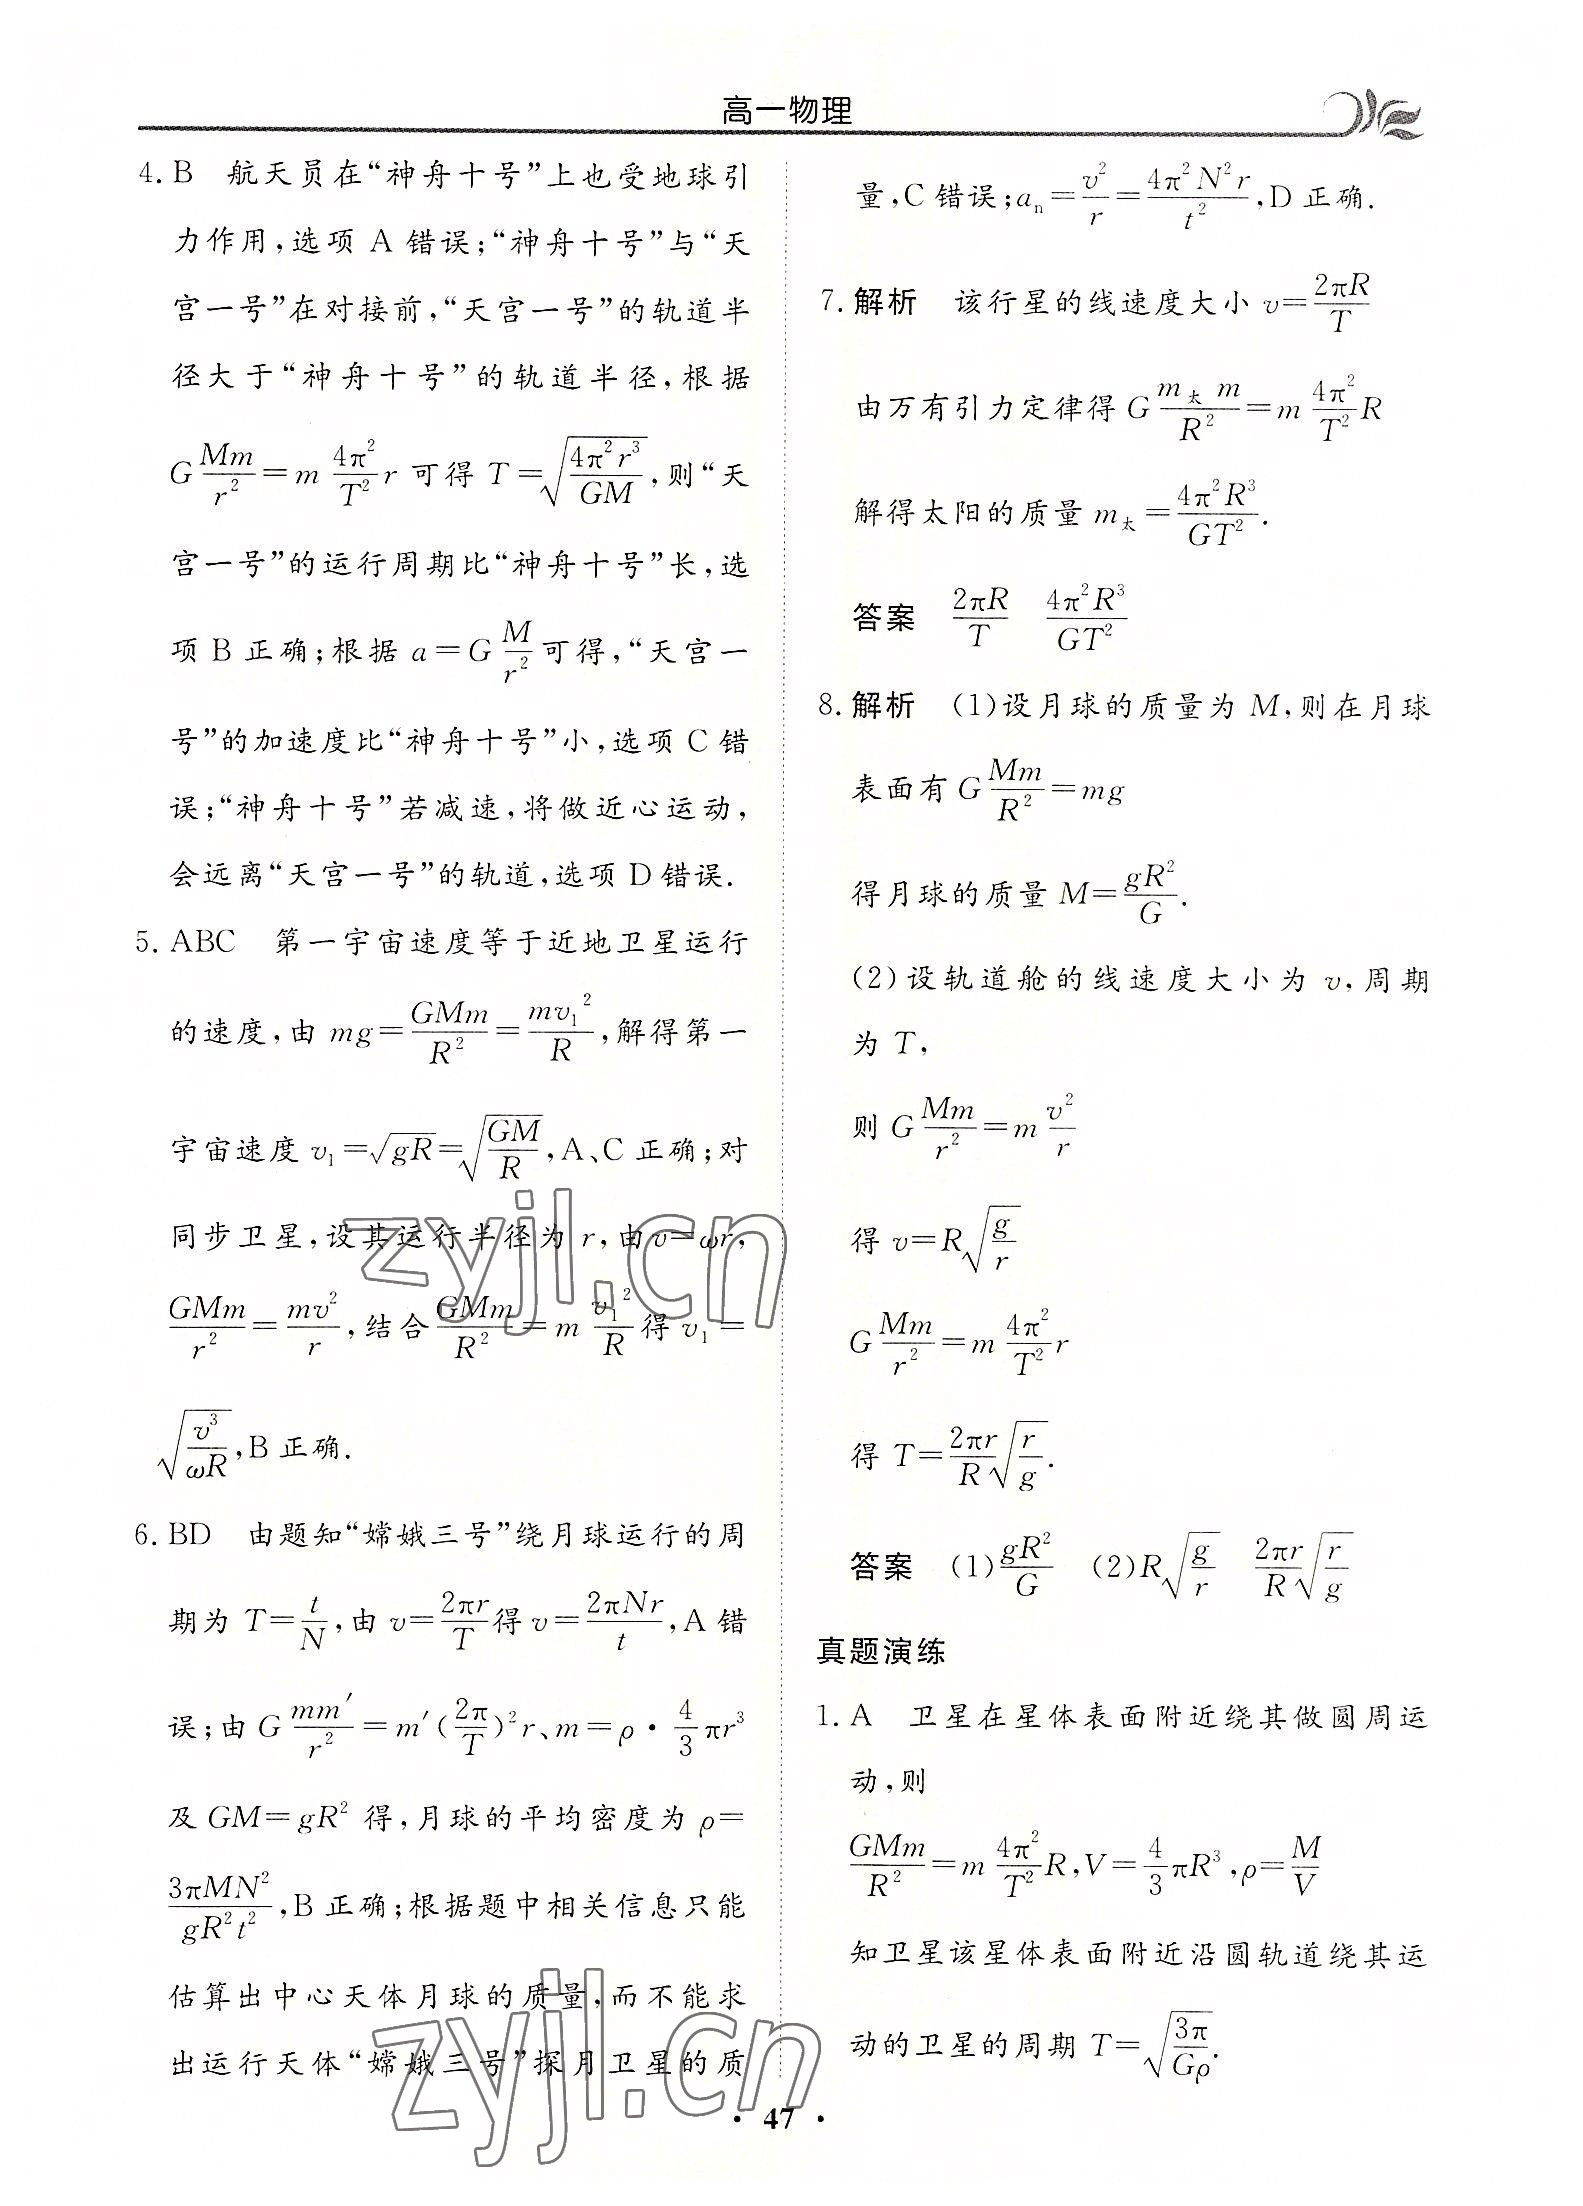 高一物理
4. B　航天员在“神舟十号”上也受地球引
力作用,选项 A 错误;“神舟十号”与“天
宫一号”在对接前,“天宫一号”的轨道半
径大于“神舟十号”的轨道半径,根据
G\frac{Mm}{r^2}=m\frac{4π^2}{T^2}r 可得 T=\sqrt{\frac{4π^2r^3}{GM}},则“天
宫一号”的运行周期比“神舟十号”长,选
项 B 正确;根据 a=G\frac{M}{r^2}可得,“天宫一
号”的加速度比“神舟十号”小,选项 C 错
误;“神舟十号”若减速,将做近心运动,
会远离“天宫一号”的轨道,选项 D 错误.
5. ABC　第一宇宙速度等于近地卫星运行
的速度,由 mg=\frac{GMm}{R^2}=\frac{mv_1^2}{R},解得第一
宇宙速度 v_1=\sqrt{gR}=\sqrt{\frac{GM}{R}},A、C 正确;对
同步卫星,设其运行半径为 r,由 v=ωr,
\frac{GMm}{r^2}=\frac{mv^2}{r},结合\frac{GMm}{R^2}=m\frac{v_1^2}{R}得 v_1=
\sqrt{\frac{v^3}{ωR}},B 正确.
6. BD　由题知“嫦娥三号”绕月球运行的周
期为 T=\frac{t}{N},由 v=\frac{2πr}{T}得 v=\frac{2πNr}{t},A 错
误;由 G\frac{mm'}{r^2}=m'(\frac{2π}{T})^2r、m=ρ·\frac{4}{3}πr^3
及 GM=gR^2 得,月球的平均密度为 ρ=
\frac{3πMN^2}{gR^2t^2},B 正确;根据题中相关信息只能
估算出中心天体月球的质量,而不能求
出运行天体“嫦娥三号”探月卫星的质
量,C 错误;a_n=\frac{v^2}{r}=\frac{4π^2N^2r}{t^2},D 正确.
7. 解析　该行星的线速度大小 v=\frac{2πR}{T}
由万有引力定律得 G\frac{m_太 m}{R^2}=m\frac{4π^2}{T^2}R
解得太阳的质量 m_太=\frac{4π^2R^3}{GT^2}.
答案　\frac{2πR}{T}　\frac{4π^2R^3}{GT^2}
8. 解析　(1)设月球的质量为 M,则在月球
表面有 G\frac{Mm}{R^2}=mg
得月球的质量 M=\frac{gR^2}{G}.
(2)设轨道舱的线速度大小为 v,周期
为 T,
则 G\frac{Mm}{r^2}=m\frac{v^2}{r}
得 v=R\sqrt{\frac{g}{r}}
G\frac{Mm}{r^2}=m\frac{4π^2}{T^2}r
得 T=\frac{2πr}{R}\sqrt{\frac{r}{g}}.
答案　(1)\frac{gR^2}{G}　(2)R\sqrt{\frac{g}{r}}　\frac{2πr}{R}\sqrt{\frac{r}{g}}
真题演练
1. A　卫星在星体表面附近绕其做圆周运
动,则
\frac{GMm}{R^2}=m\frac{4π^2}{T^2}R,V=\frac{4}{3}πR^3,ρ=\frac{M}{V}
知卫星该星体表面附近沿圆轨道绕其运
动的卫星的周期 T=\sqrt{\frac{3π}{Gρ}}.
· 47 ·
zyjl.cn
zyjl.cn